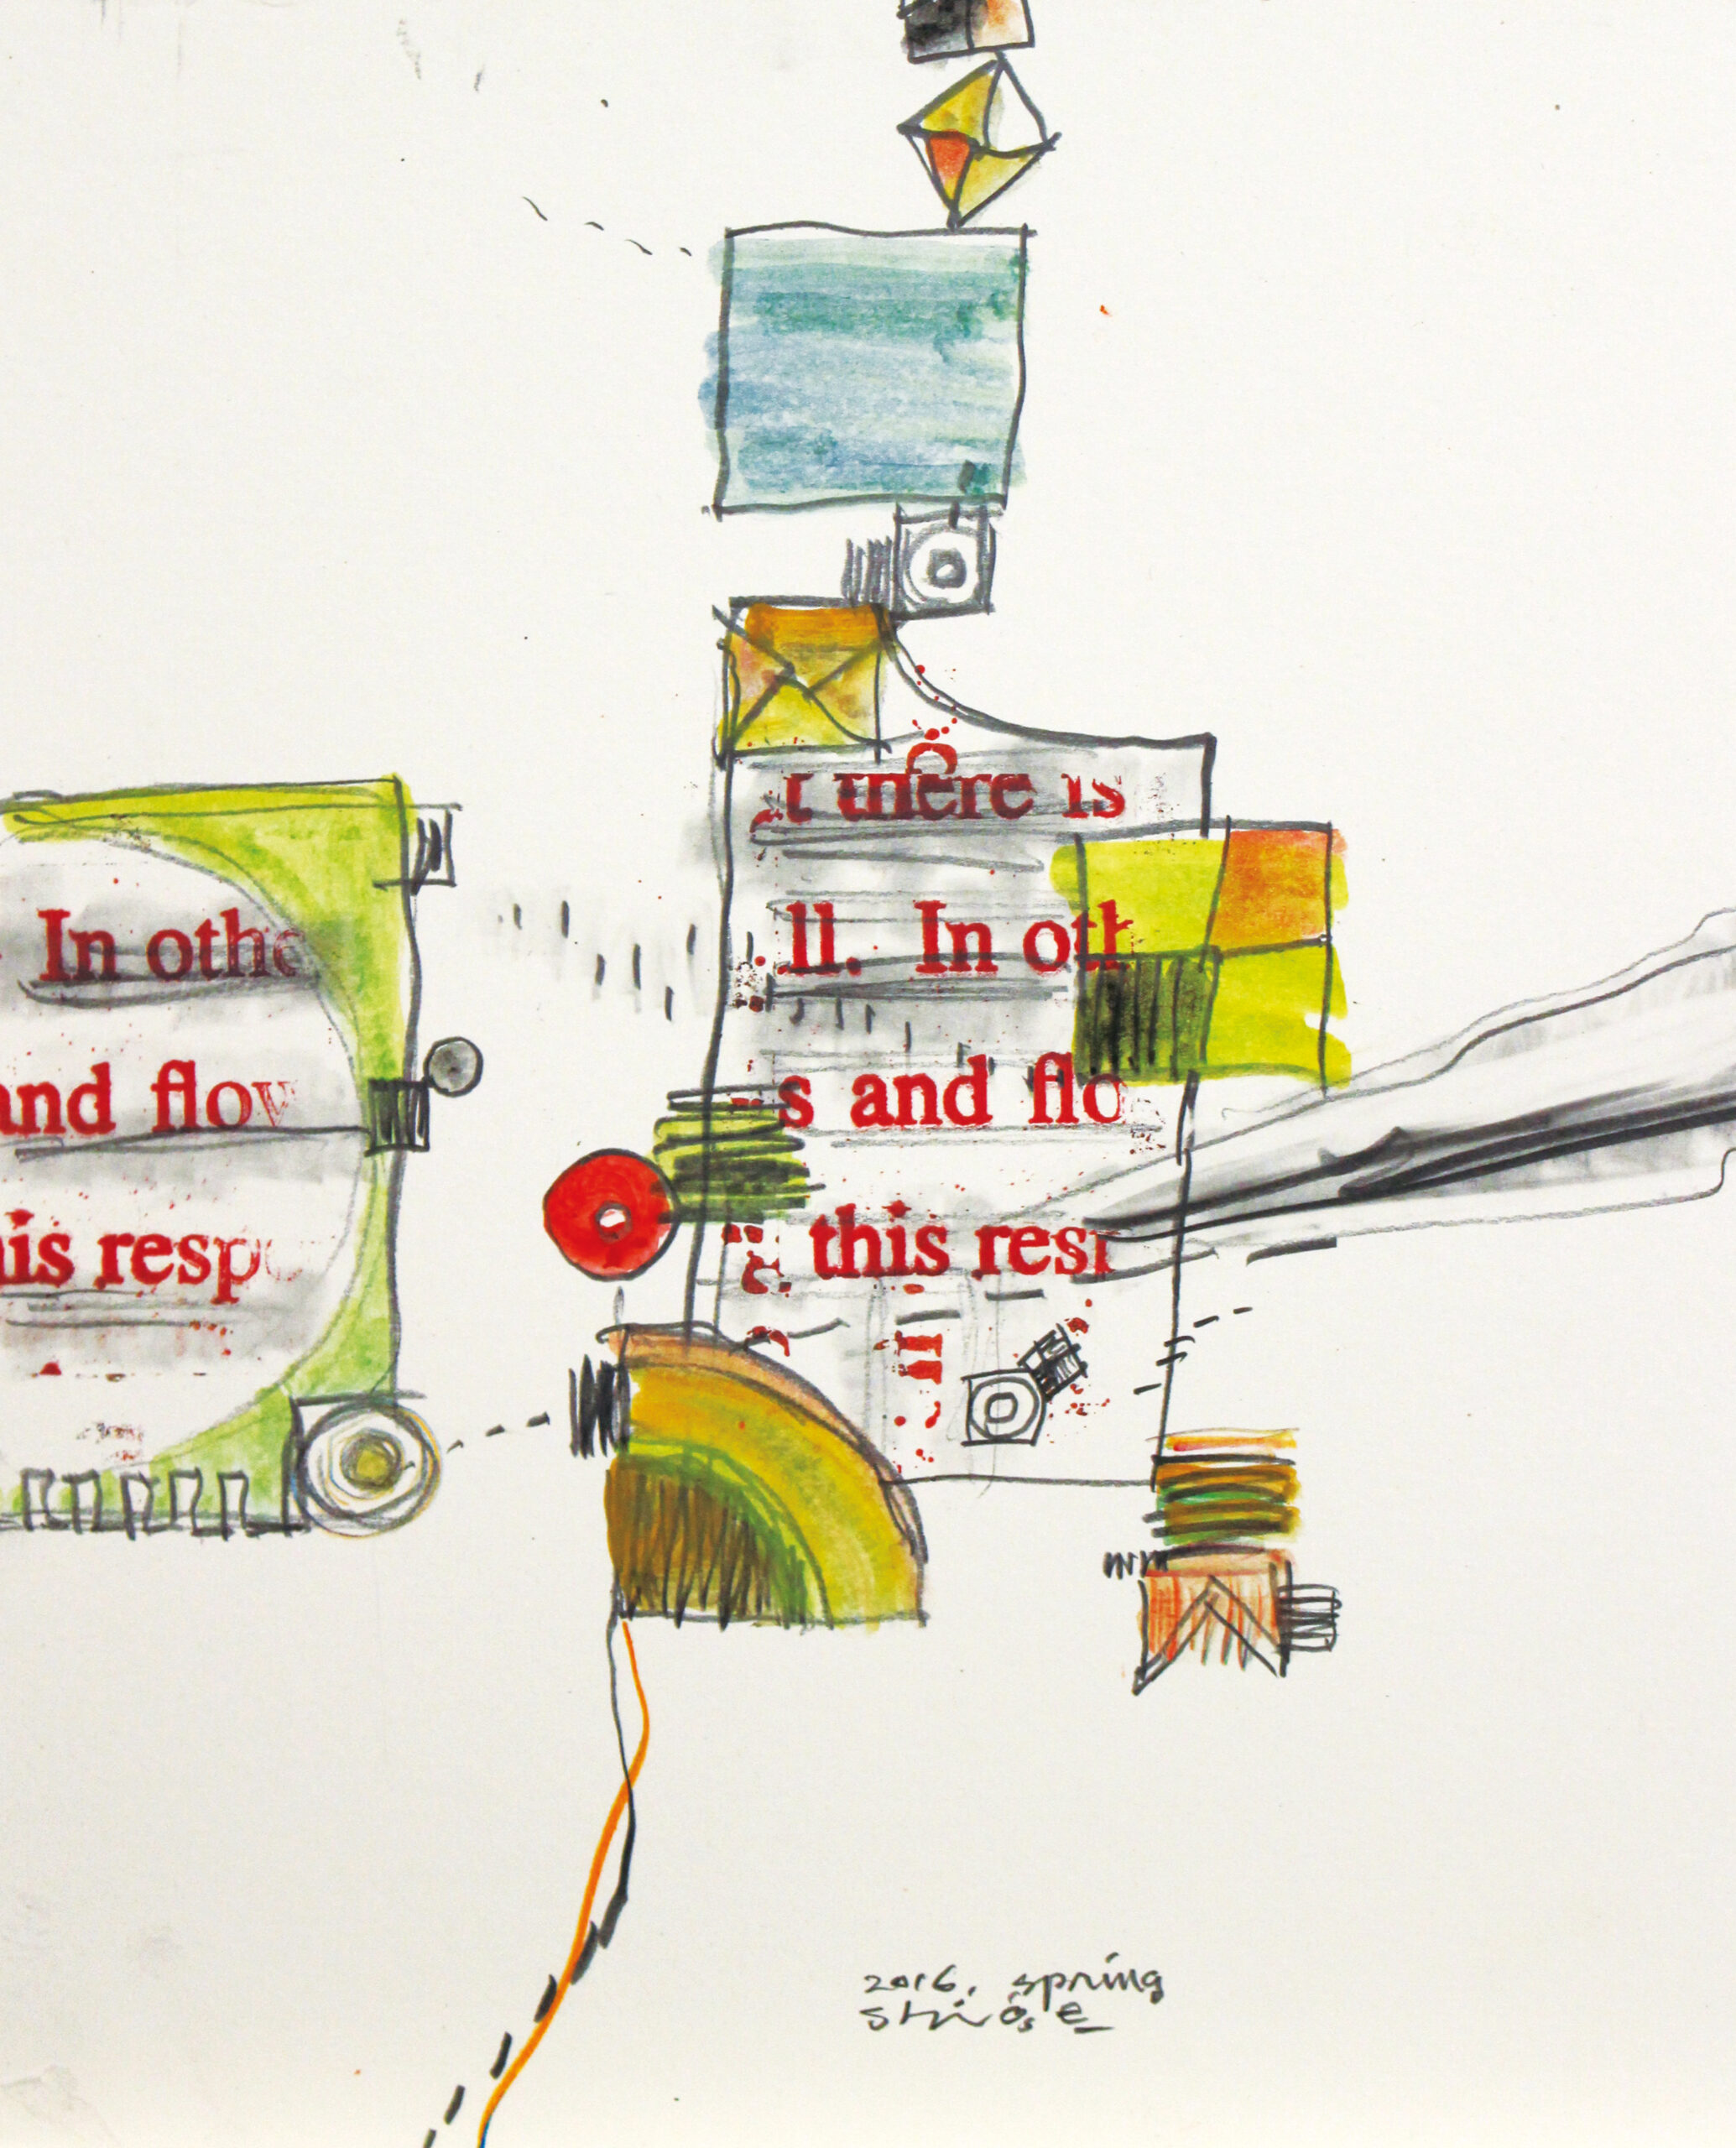 In othe
and flov
his resp
t there is
ll. In oth
s and flo
this resp
2016. spring